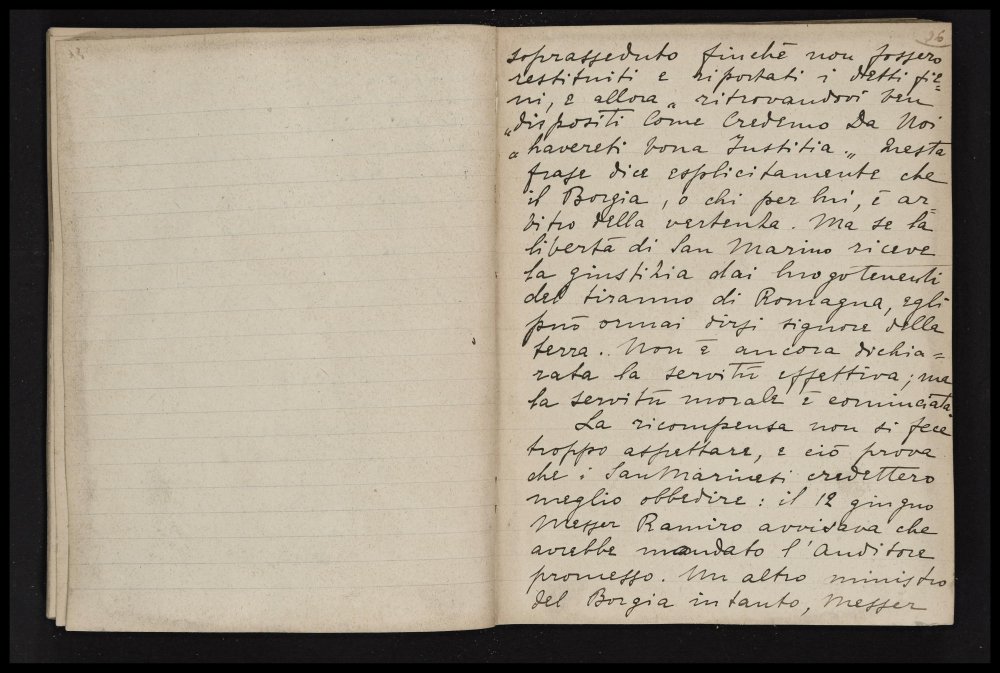 36
soprasseduto finchè non fossero
restituiti e riportati i detti fie=
ni, e allora „ ritrovandovi ben
„ dispositi Come Credemo Da Noi
„ havereti bona Justitia „ Questa
frase dice esplicitamente che
il Borgia, o chi per lui, è ar=
bitro della vertenza. Ma se la
libertà di San Marino riceve
la giustizia dai luogotenenti
del tiranno di Romagna, egli
può ormai dirsi signore della
terra.. Non è ancora dichia=
rata la servitù effettiva; ma
la servitù morale è cominciata.
La ricompensa non si fece
troppo aspettare, e ciò prova
che i San Marinesi credettero
meglio obbedire: il 12 giugno
Messer Ramiro avvisava che
avrebbe mandato l'Auditore
promesso. Un altro ministro
del Borgia intanto, Messer